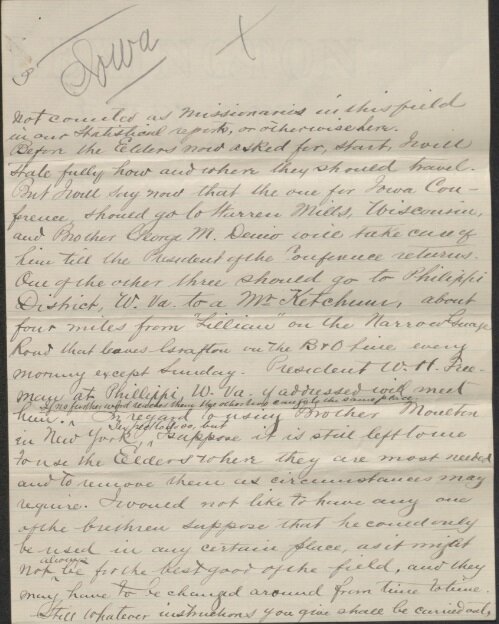 3
Iowa
X
not counted as Missionaries in this field
in our Statistical report, or otherwise here.
Before the Elders now asked for, start, I will
state fully how and where they should travel.
But I will say now that the one for Iowa Con-
ference, should go to Warren Mills, Wisconsin,
and Brother George M. will take care of
him till the President of the Conference returns.
One of the other three should go to Philippi
District, W. Va. to a Mr Ketchum, about
four miles from "Lillian" on the Narrow Guage
Road that leaves Grafton on the B & O line every
morning except Sunday. President W. H. Free-
man at Phillippi, W. Va. if addressed will meet
If no further word reaches them the other two can go to the same place.
him. In regard to using Brother Moulton
Say so, but
in New York, I suppose it is still left to me
to use the Elders where they are most needed
and to remove them as circumstances may
require. I would not like to have any one
of the brethren suppose that he could only
be used in any certain place, as it might
always
not be for the best good of the field, and they
may have to be changed around from time to time.
Still whatever instructions you give shall be carried out,